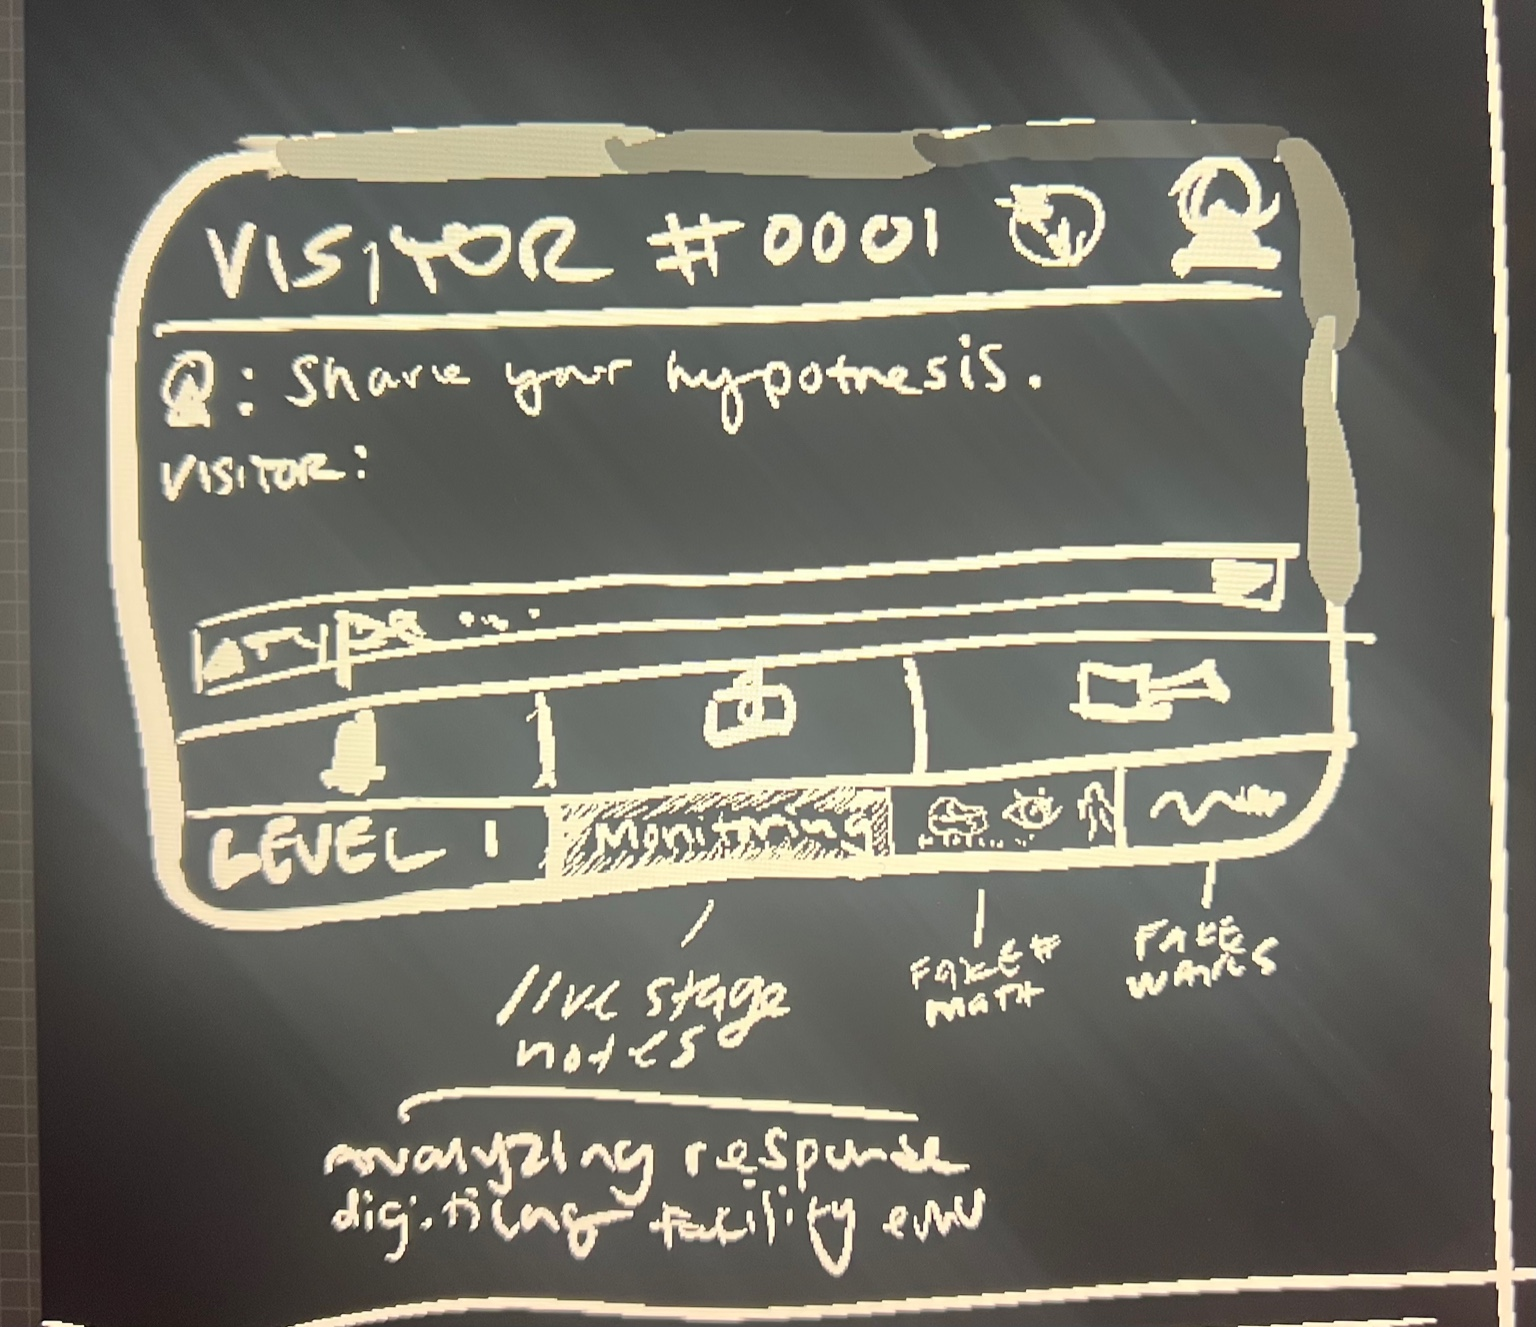 VISITOR #0001
: Share your hypothesis.
VISITOR:
type ...
LEVEL 1
Monitoring
live stage
notes
FAKE #
MATH
FAKE
WAVES
analyzing response
digitizing facility env